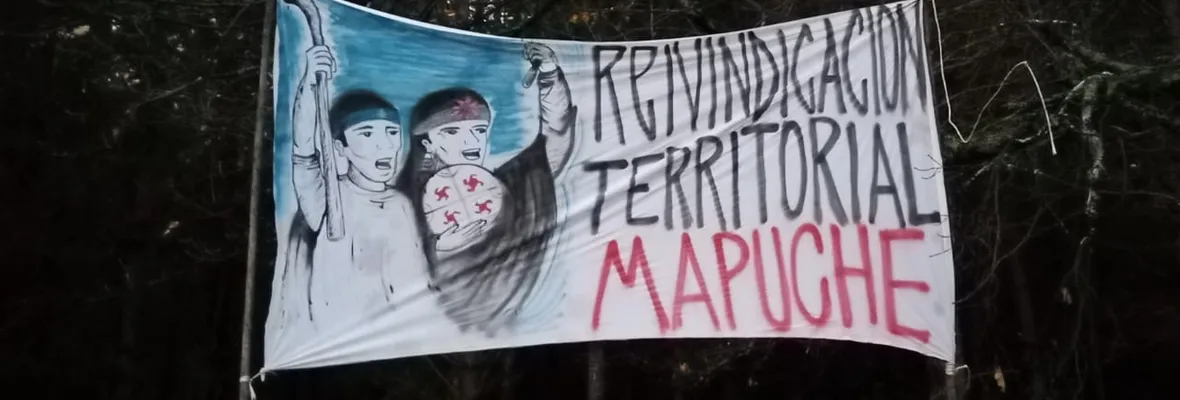 REIVINDICACION
TERRITORIAL
MAPUCHE